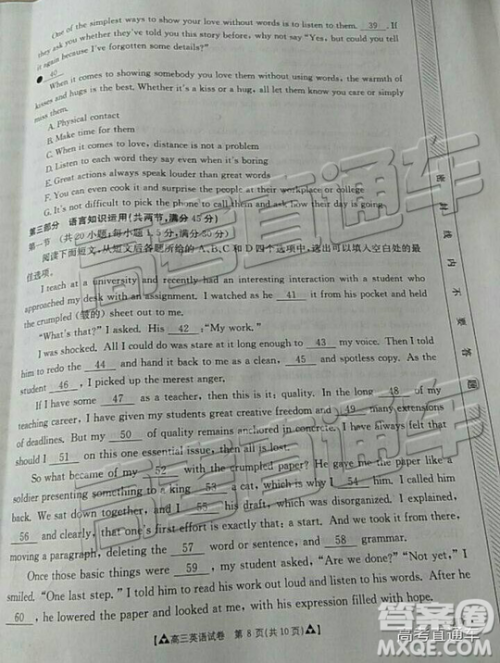 One of the simplest ways to show your love without words is to listen to them. 39 . If
they ask you whether they've told you this story before, why not say "Yes, but could you tell
it again because I've forgotten some details?"
● 40
When it comes to showing somebody you love them without using words, the warmth of
kisses and hugs is the best. Whether it's a kiss or a hug, all let them know you care or simply
miss them.
A. Physical contact
B. Make time for them
C. When it comes to love, distance is not a problem
D. Listen to each word they say even when it's boring
E. Great actions always speak louder than great words
F. You can even cook it and surprise the people at their workplace or college
G. It's not difficult to pick the phone to call them and ask how their day is going
第三部分 语言知识运用(共两节,满分45分)
第一节 (共20小题;每小题1.5分,满分30分)
阅读下面短文,从短文后各题所给的A、B、C和D四个选项中,选出可以填入空白处的最
佳选项。
I teach at a university and recently had an interesting interaction with a student who
approached my desk with an assignment. I watched as he 41 it from his pocket and held
the crumpled (皱的) sheet out to me.
"What's that?" I asked. His 42 : "My work."
I was shocked. All I could do was stare at it long enough to 43 my voice. Then I told
him to redo the 44 and hand it back to me as a clean, 45 and spotless copy. As the
student 46 , I picked up the merest anger.
If I have some 47 as a teacher, then this is it: quality. In the long 48 of my
teaching career, I have given my students great creative freedom and 49 many extensions
of deadlines. But my 50 of quality remains anchored in concrete. I have always felt that
should I 51 on this one essential issue, then all is lost.
So what became of my 52 with the crumpled paper? He gave me the paper like a
soldier presenting something to a king 53 a cat, which is why I 54 him. He came
back. We sat down together, and I 55 his draft, which was disorganized. I explained,
56 and clearly, that one's first effort is exactly that: a start. I told him to start there,
moving a paragraph, deleting the 57 word or sentence, and 58 grammar.
Once those basic things were 59 , my student asked, "Are we done?" "Not yet," I
smiled. "One last step." I told him to read his work out loud and listen to his words. After he
60 , he lowered the paper and looked at me, with his expression filled with hope.
【▲高三英语试卷 第 8 页(共 10 页)▲】
密 封 线 内 不 要 答 题
高考直通车
高考直通车
高考直通车
答案圈
高考直通车